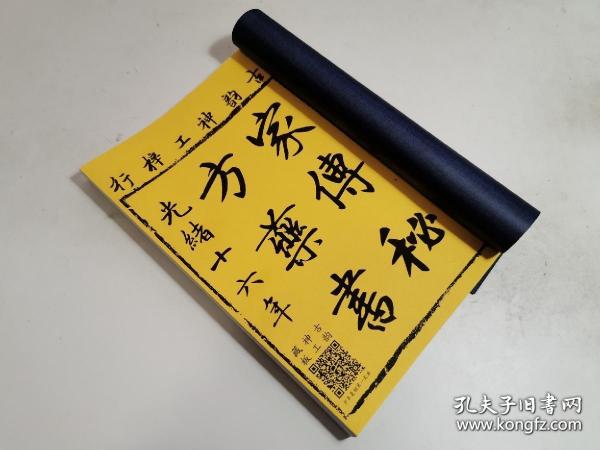 古韵神工梓行
家傳秘
方藥書
光緒十六年
古韵
神工
藏板
孔夫子旧书网
www.kongfz.com